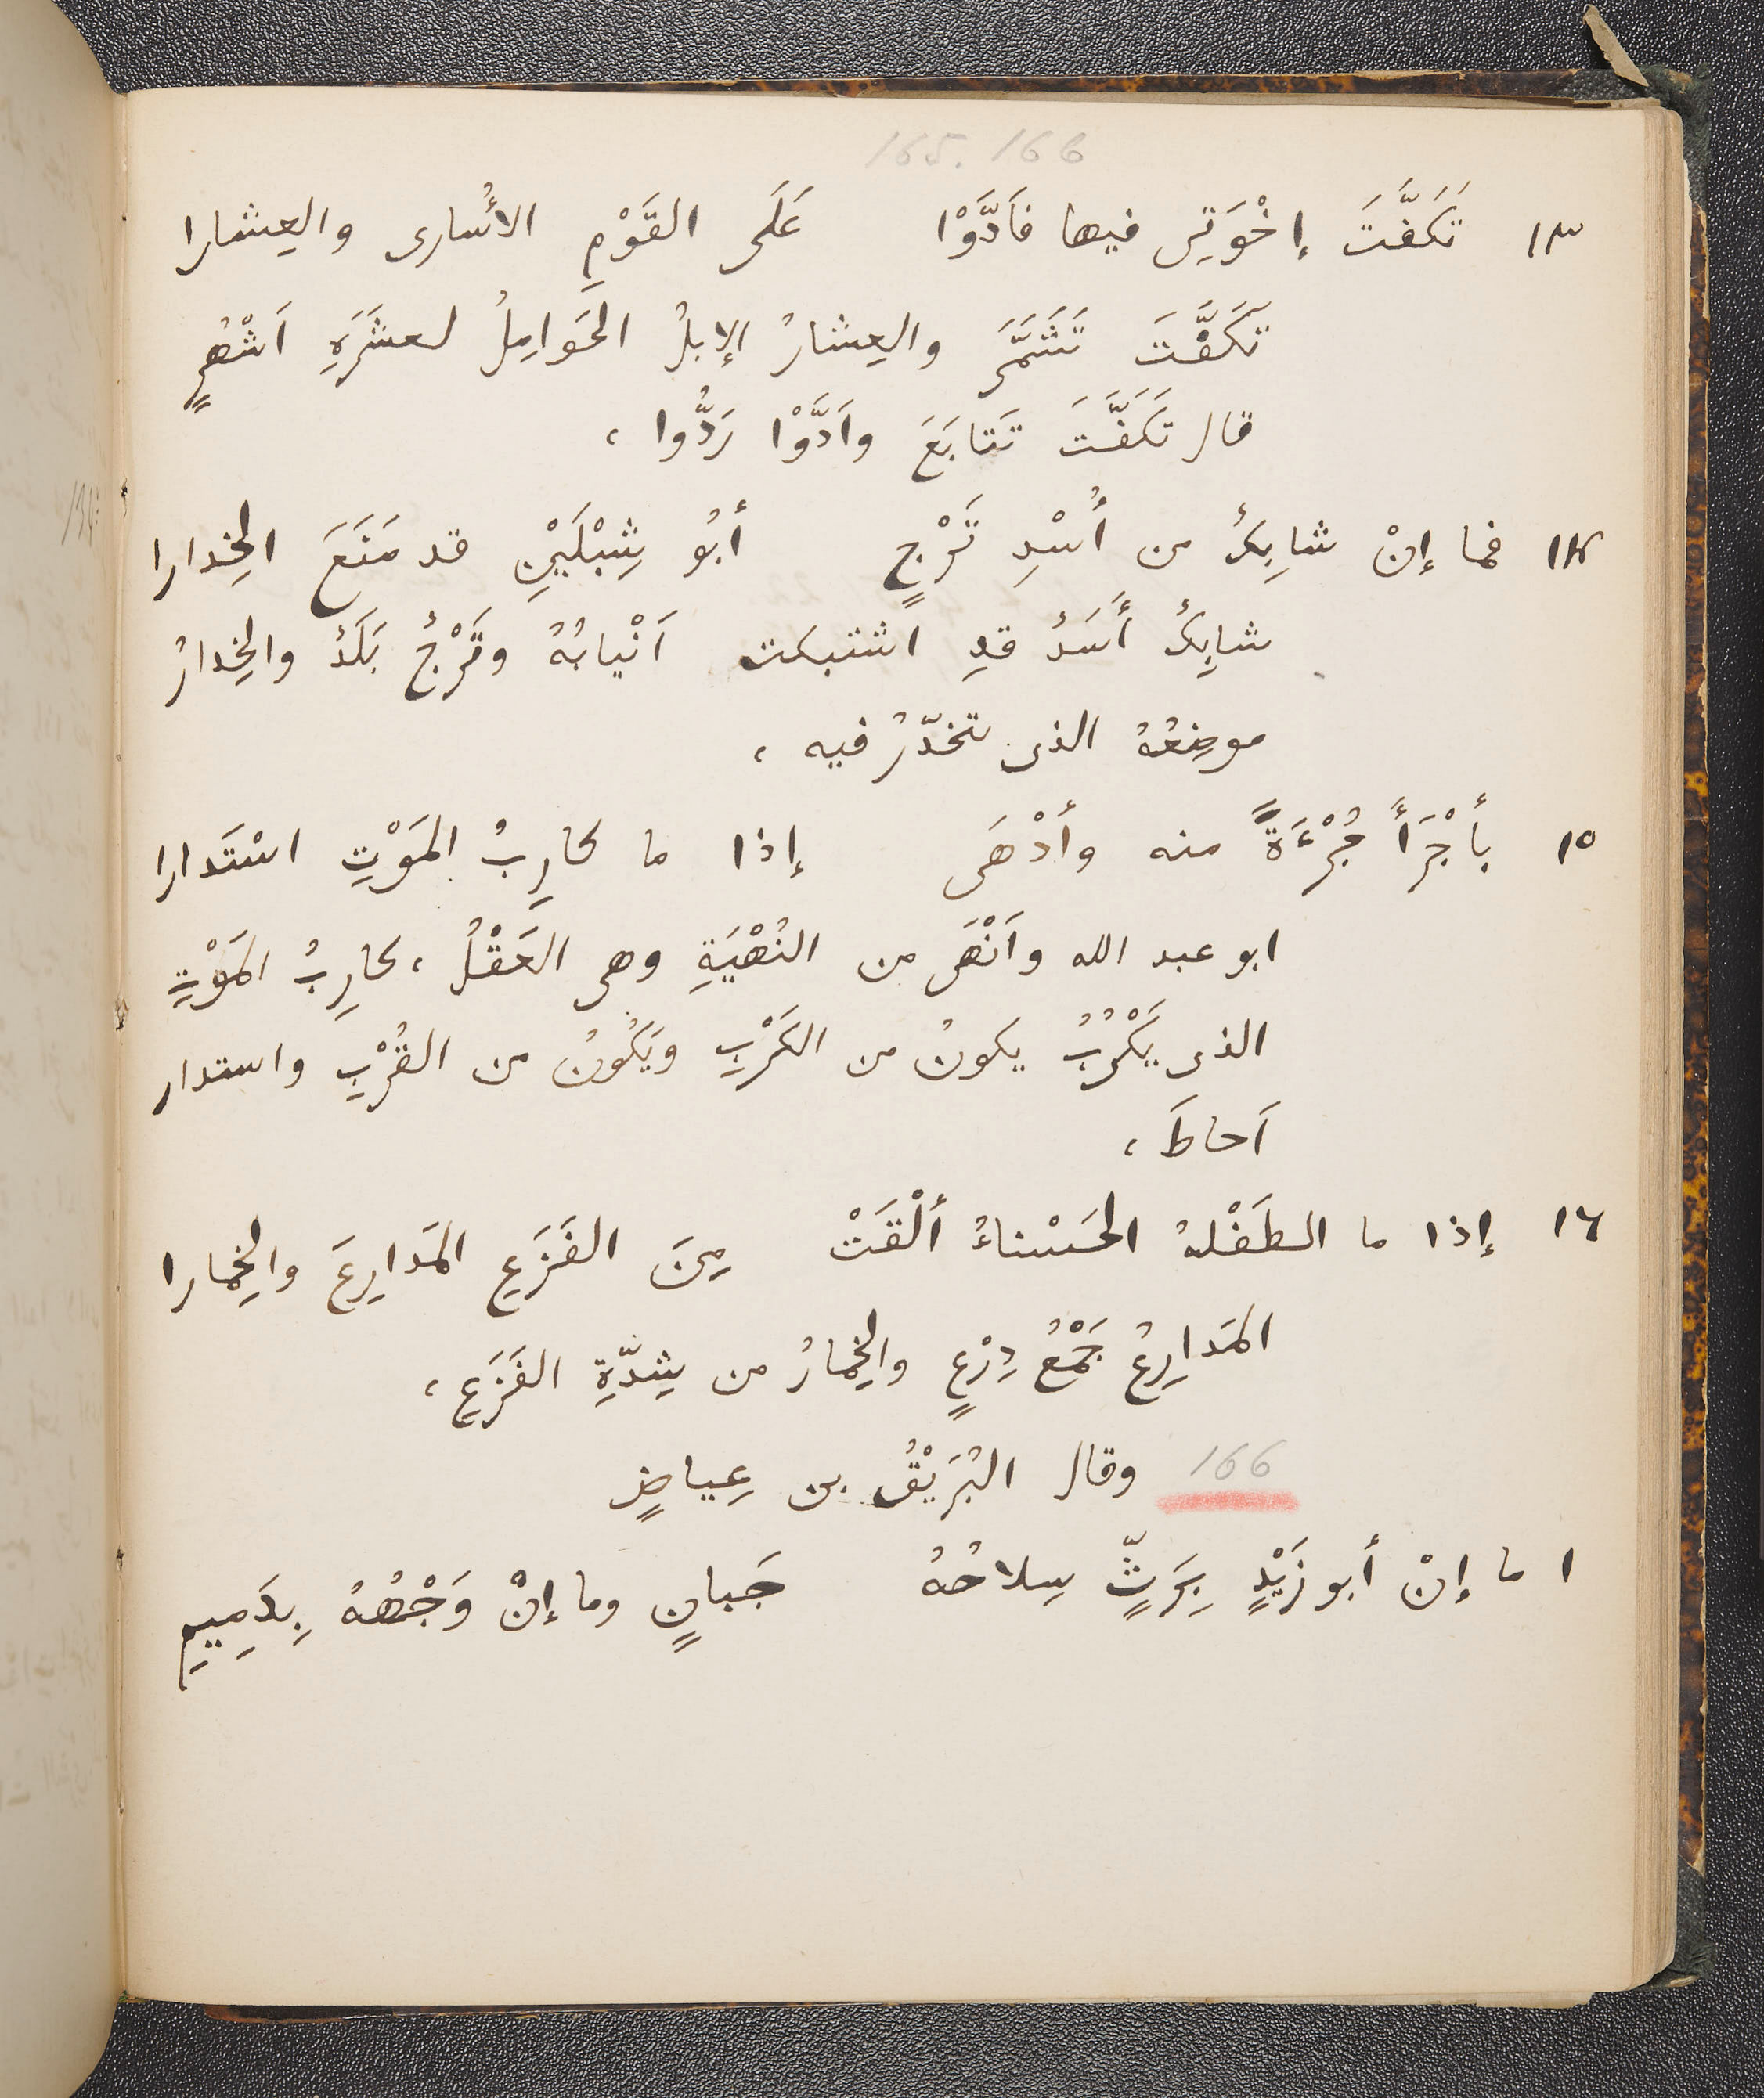 165. 166
١٣ تَكَفَّتَ إخْوَتِى فيها فَأَدَّوْا عَلَى القَوْمِ الأُسارى والعِشارا
تَكَفَّتَ تَشَمَّرَ والعِشارُ الإبلُ الحَوَامِلُ لعشَرَةِ اَشْهُرٍ
قال تَكَفَّتَ تَتابَعَ واَدَّوْا رَدُّوا ،
١٤ فما إنْ شابِكٌ من أُسْدِ تَرْجٍ أبُو شِبْلَيْنِ قد مَنَعَ الخِدارا
شابِكٌ أَسَدٌ قدِ اشتبكت اَنْيابُهُ وتَرْجُ بَلَدٌ والخِدارُ
موضِعُهُ الذى تخدّرُ فيه ،
١٥ بأَجْرَأَ جُرْءَةً منه وأَدْهَى إذا ما كارِبُ المَوْتِ اسْتَدارا
ابو عبد الله واَنْهَى من النُهْيَةِ وهى العَقْلُ ، كارِبُ المَوْتِ
الذى يَكْرُبُ يكونُ من الكَرْبِ ويَكُونُ من القُرْبِ واستدار
اَحاطَ ،
١٦ إذا ما الطَفْلهُ الحَسْناءُ ألْقَتْ مِنَ الفَزَعِ المَدارِعَ والخِمارا
المَدارِعُ جَمْعُ دِرْعٍ والخِمارُ من شِدّةِ الفَزَعِ ،
166 وقال البُرَيْقُ بن عِياضٍ
١ ما إنْ أبو زَيْدٍ بِرَثٍّ سِلاحُهُ جَبانٍ وما إنْ وَجْهُهُ بِدَمِيمِ